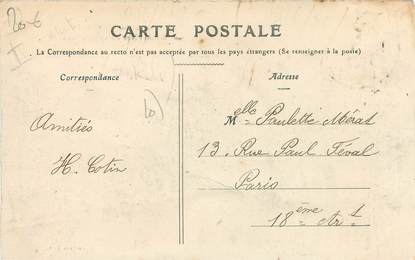 CARTE POSTALE
La Correspondance au recto n'est pas acceptée par tous les pays étrangers (Se renseigner à la poste)
Correspondance
Adresse
Amitiés
H. Cotin
Melle Paulette Mérat
13 Rue Paul Féval
Paris
18ème Arrt
20€